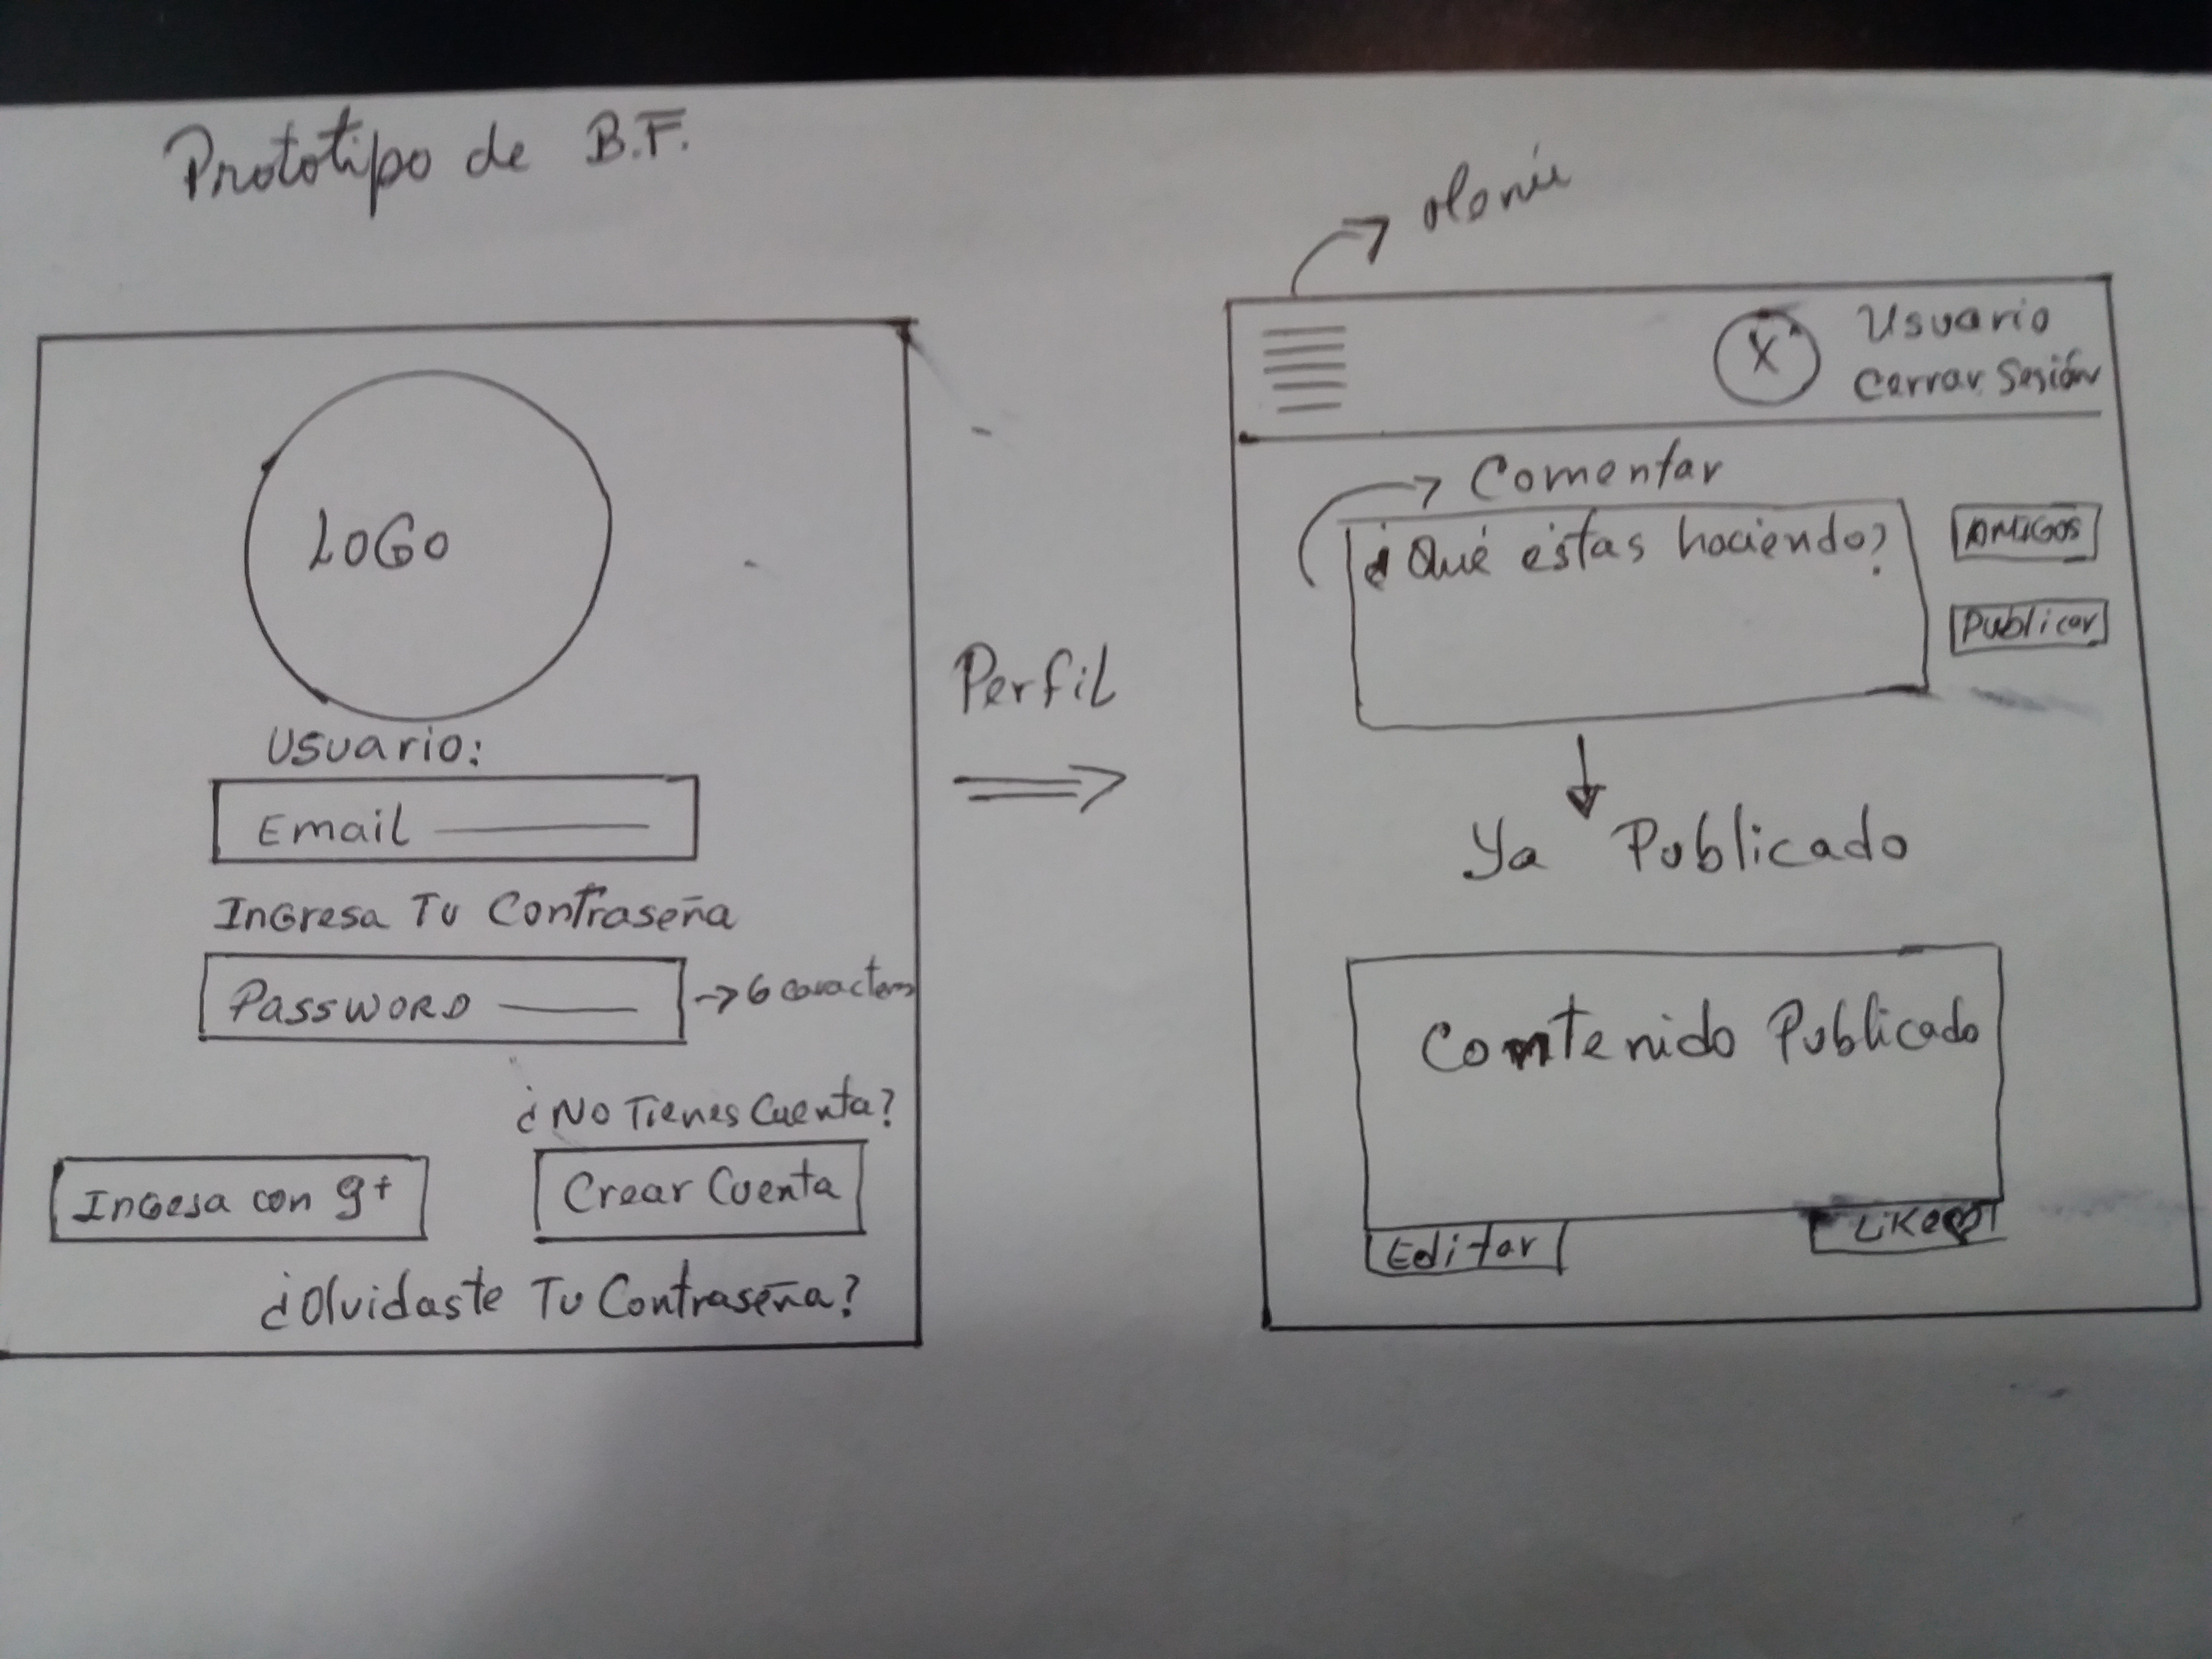 Prototipo de B.F.
LOGO
Usuario:
Email
Ingresa Tu Contraseña
Password
→ 6 caracteres
¿No Tienes Cuenta?
Ingesa con g+
Crear Cuenta
¿Olvidaste Tu Contraseña?
Perfil
Menú
X
Usuario
Cerrar Sesión
Comentar
¿Qué estas haciendo?
AMIGOS
Publicar
Ya Publicado
Contenido Publicado
Editar
Like